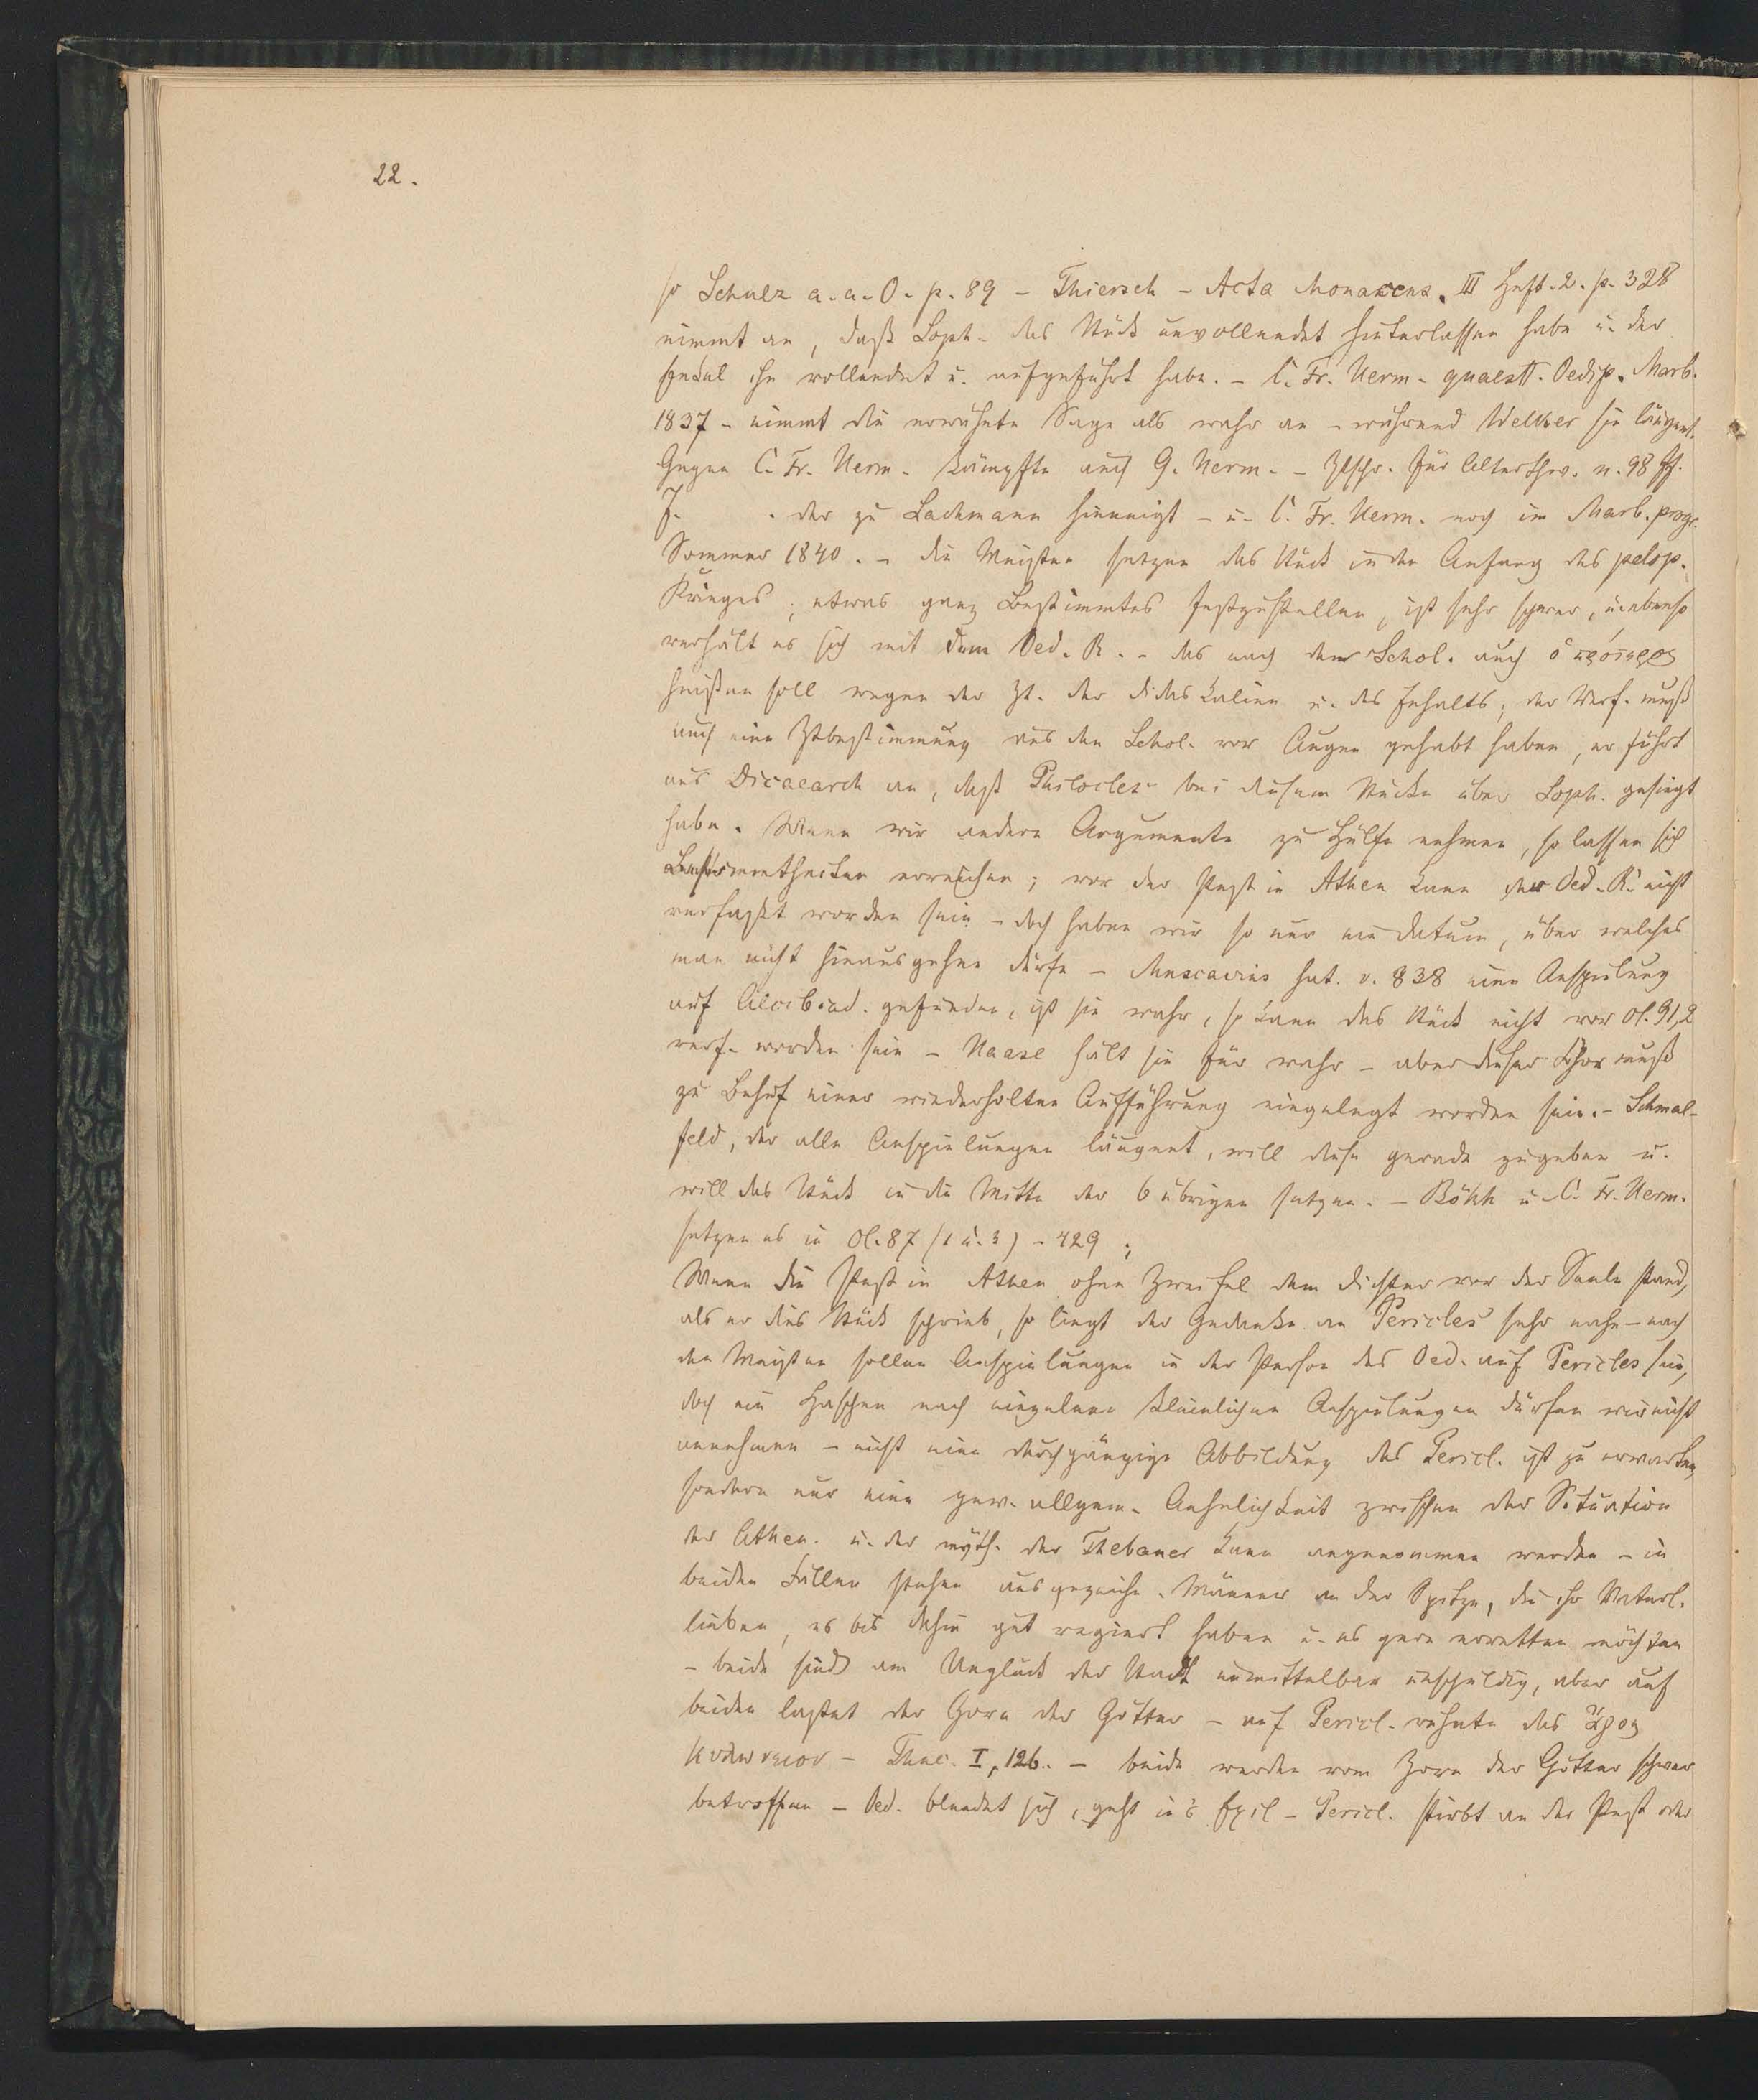 22.
so Schulz a. a. O. p. 89 – Thiersch – Acta Monacens. III Heft. 2. p. 328
nimmt an, daß Soph. das Stück unvollendet hinterlassen habe u. der
Enkel ihn vollendet u. aufgeführt habe. – C. Fr. Herm. quaestt. Oedip. Marb.
1837 – nimmt die erwähnte Sage als wahr an – während Welker sie läugnet.
Gegen C. Fr. Herm. kämpfte auch G. Herm. – Ztschr. für Alterthw. n. 98 ff.
J. . der zu Lachmann hinneigt – u. C. Fr. Herm. noch im Marb. progr.
Sommer 1840. – die Meisten setzen das Stück in den Anfang des pelop.
Krieges; etwas ganz Bestimmtes festzustellen, ist sehr schwer, u. ebenso
verhält es sich mit dem Oed. R. – das nach dem Schol. auch ὁ πρότερος
heißen soll wegen der Zt. der didaskalien u. des Inhalts; der Verf. muß
auch eine Ztbestimmung aus den Schol. vor Augen gehabt haben, er führt
aus Dicaearch an, daß Philocles bei diesem Stücke über Soph. gesiegt
habe. Wenn wir andere Argumente zu Hülfe nehmen, so lassen sich
Bestimmtheiten erreichen; vor der Pest in Athen kann der Oed. R. nicht
verfaßt worden sein – doch haben wir so nur ein datum, über welches
man nicht hinausgehen dürfe – Muscavius hat. v. 838 eine Anspielung
auf Alcibiad. gefunden, ist sie wahr, so kann das Stück nicht vor Ol. 91,2
verf. worden sein – Haase hält sie für wahr – aber dieser Chor muß
zu Behuf einer wiederholten Aufführung eingelegt worden sein. – Schmal-
feld, der alle Anspielungen läugnet, will diese gerade zugeben u.
will das Stück in die Mitte der 6 übrigen setzen. – Bökh u. C. Fr. Herm.
setzen es in Ol. 87 (2 u. 3) – 429;
Wenn die Pest in Athen ohne Zweifel dem dichter vor der Seele stand,
als er dies Stück schrieb, so liegt der Gedanke an Pericles sehr nahe – nach
den Meisten sollen Anspielungen in der Person des Oed. auf Pericles sein,
doch ein Haschen nach einzelnen kleinlichen Anspielungen dürfen wir nicht
annehmen – nicht eine durchgängige Abbildung des Pericl. ist zu erwarten,
sondern nur eine gew. allgem. Aehnlichkeit zwischen der Situation
der Athen. u. der myth. der Thebaner kann angenommen werden – in
beiden Fällen stehen ausgezeichn. Männer an der Spitze, die ihr Vaterl.
lieben, es bis dahin gut regiert haben u. es gern erretten möchten
– beide sind am Unglück der Stadt unmittelbar unschuldig, aber auf
beiden lastet der Zorn der Götter – auf Pericl. ruhte das ἄγος
Κυλώνειον – Thuc. I, 126. – beide werden vom Zorn der Götter schwer
betroffen – Oed. blendet sich, geht in's Exil – Pericl. stirbt an der Pest oder